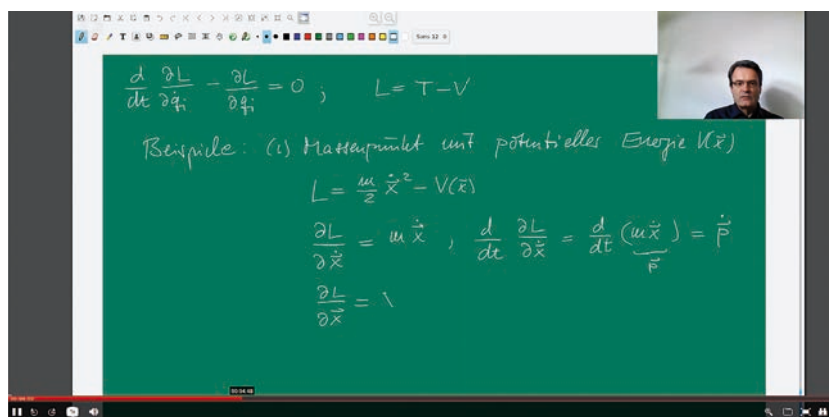 T
Sans 12
d/dt ∂L/∂q̇ᵢ − ∂L/∂qᵢ = 0 ; L = T − V
Beispiele: (1) Massenpunkt mit potentieller Energie V(x⃗)
L = m/2 ẋ⃗² − V(x⃗)
∂L/∂ẋ⃗ = m ẋ⃗ , d/dt ∂L/∂ẋ⃗ = d/dt (m ẋ⃗) = ṗ⃗
p⃗
∂L/∂x⃗ = \
00:04:48